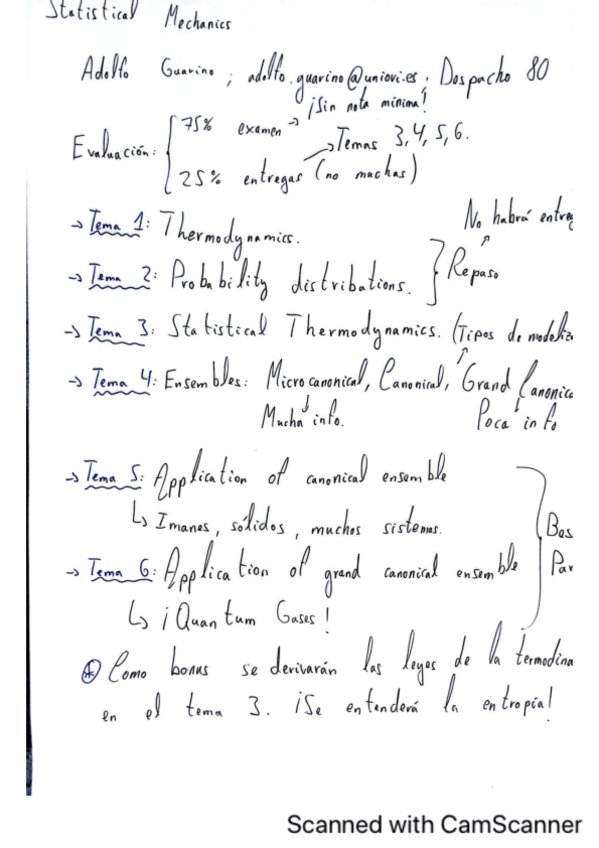 Statistical Mechanics
Adolfo Guarino ; adolfo.guarino@uniovi.es . Despacho 80
¡Sin nota mínima!
Evaluación: 75% examen → Temas 3, 4, 5, 6.
25% entregas (no muchas)
No habrá entreg
→ Tema 1: Thermodynamics.
→ Tema 2: Probability distributions. } Repaso
→ Tema 3: Statistical Thermodynamics. (Tipos de modeliz
→ Tema 4: Ensembles: Microcanonical, Canonical, Grand Canonica
Mucha info. Poca info
→ Tema 5: Application of canonical ensemble
↳ Imanes, sólidos, muchos sistemas.
Bos
→ Tema 6: Application of grand canonical ensemble
Par
↳ ¡Quantum Gases!
* Como bonus se derivarán las leyes de la termodina
en el tema 3. ¡Se entenderá la entropía!
Scanned with CamScanner